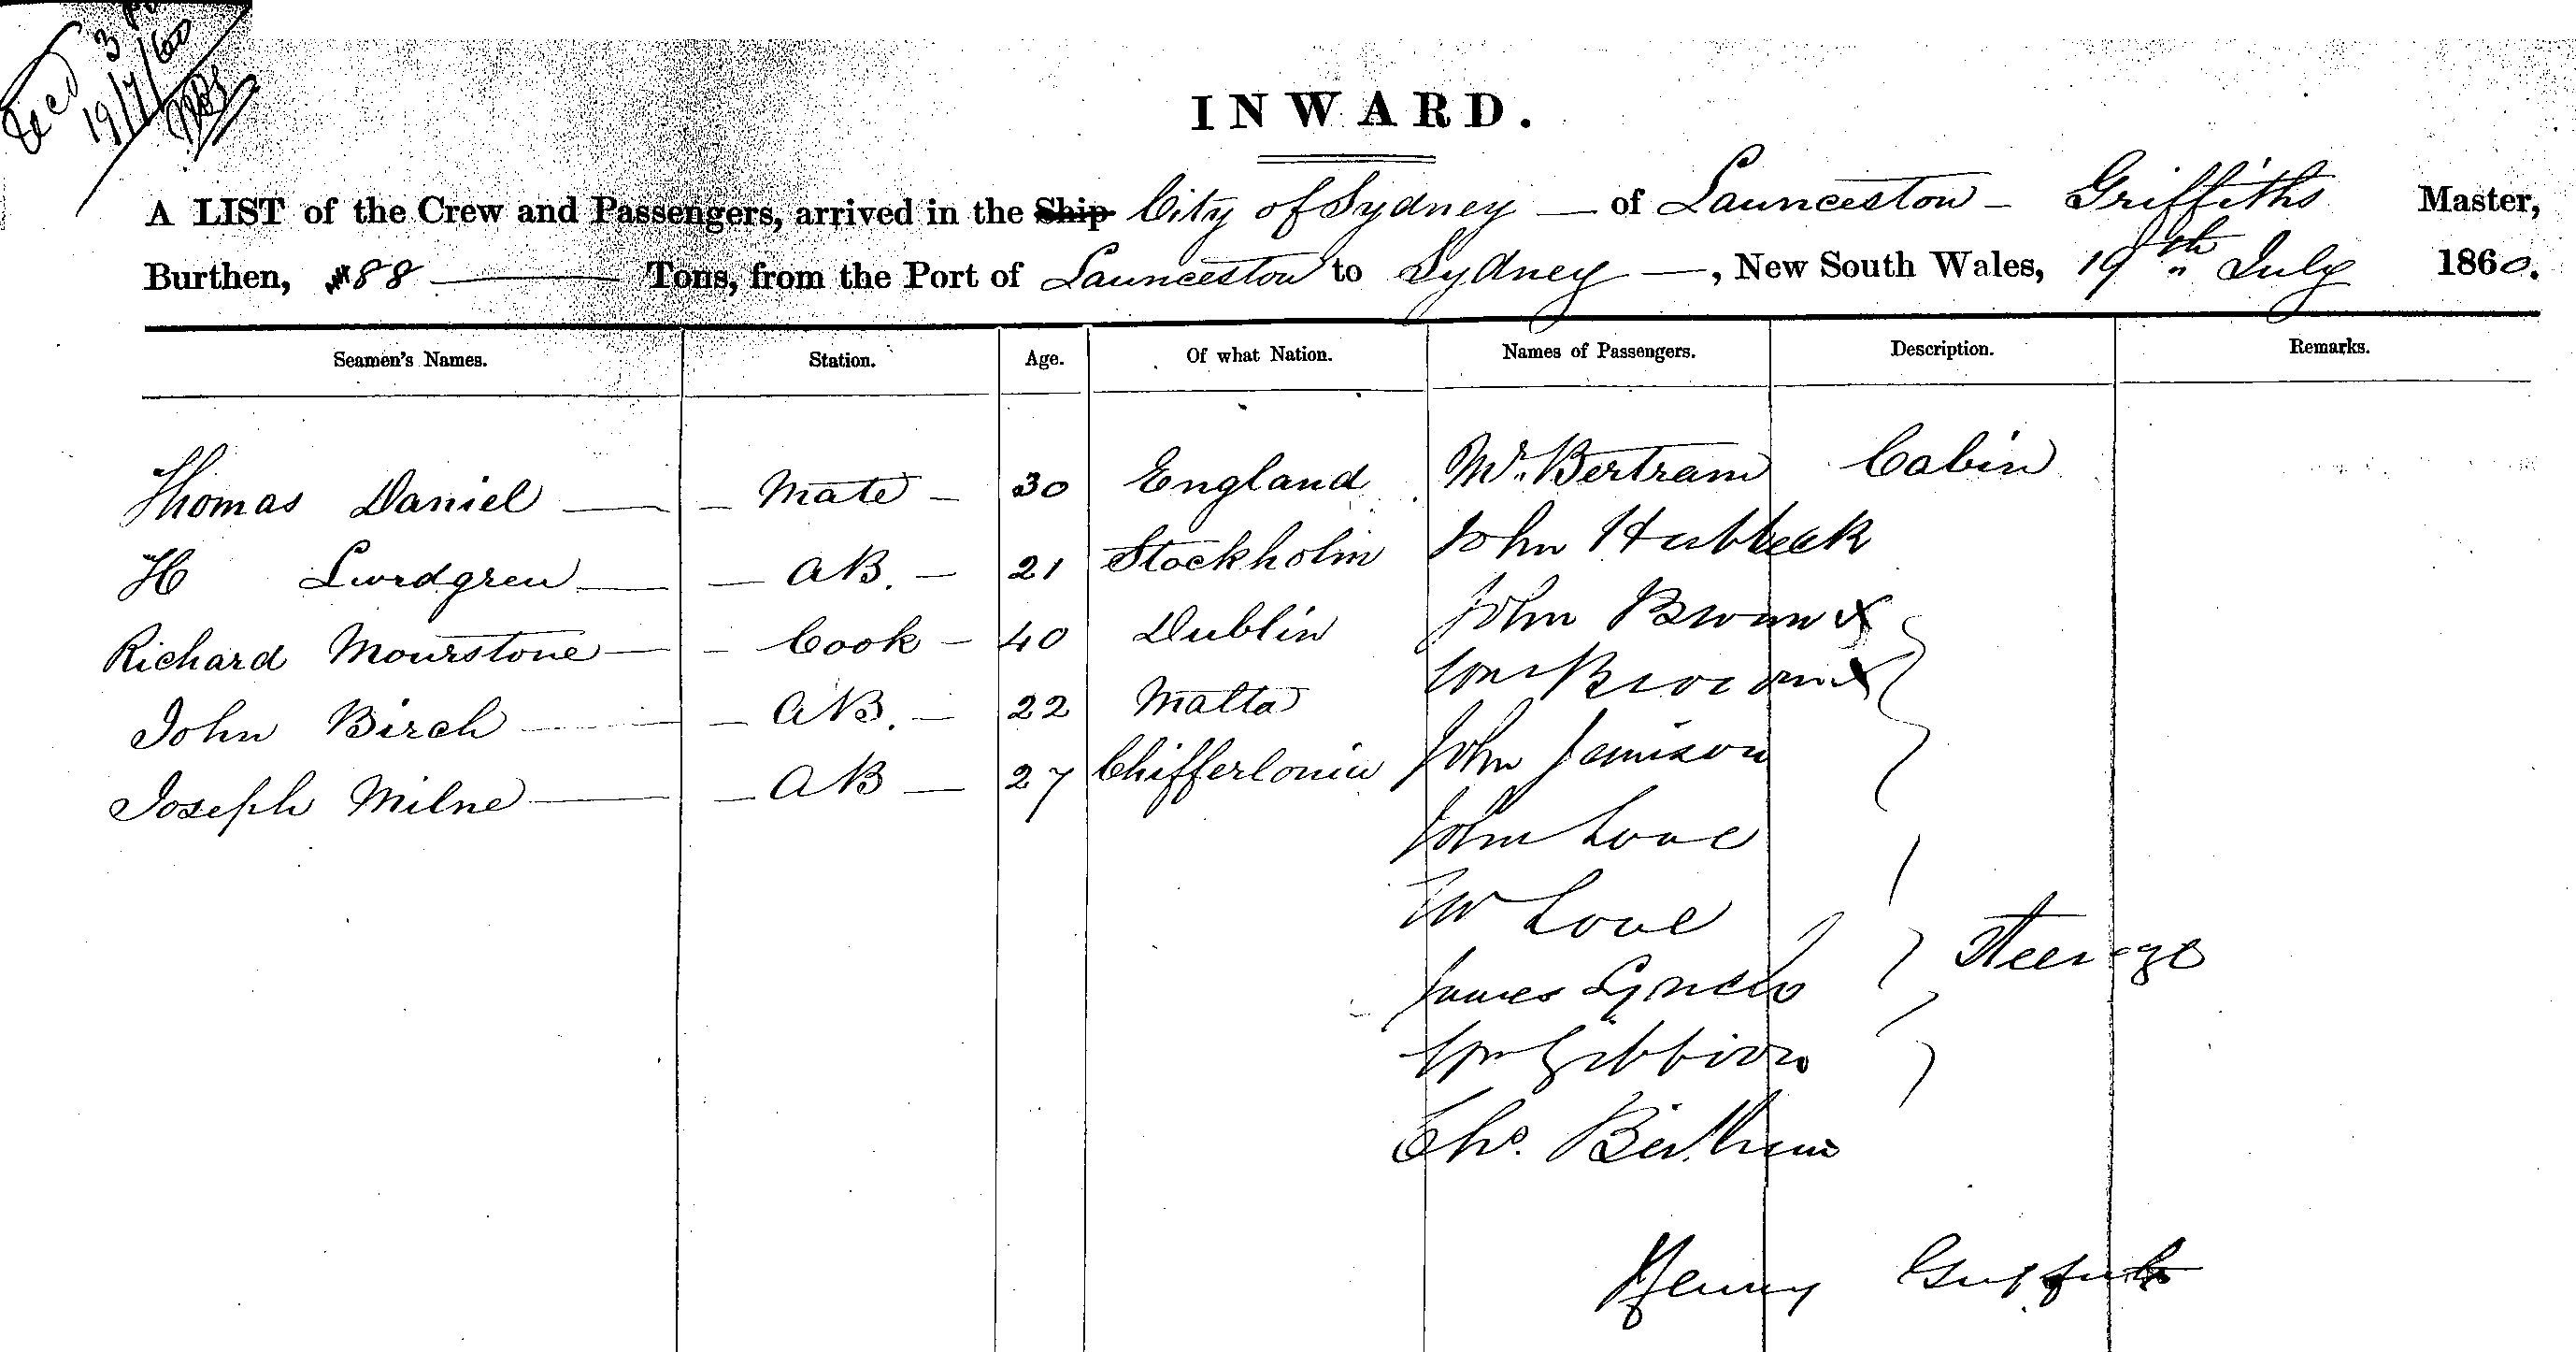 Recd 3
19/7/60
INWARD.
A LIST of the Crew and Passengers, arrived in the Ship City of Sydney — of Launceston — Griffiths Master,
Burthen, 88 — Tons, from the Port of Launceston to Sydney —, New South Wales, 19th July 1860.
Seamen's Names. Station. Age. Of what Nation. Names of Passengers. Description. Remarks.
Thomas Daniel — Mate — 30 England Mr. Bertram Cabin
H — AB. — 21 Stockholm John Hubbeck
Richard Mourstone — Cook — 40 Dublin John Brown x
John Birch — AB. — 22 Malta Wm Brown x
Joseph Milne — AB — 27 Chifferlonia John Jamison
John Love
W Love
Steerage
James Lynch
Wm Gibbion
Chs.
Henry Griffiths